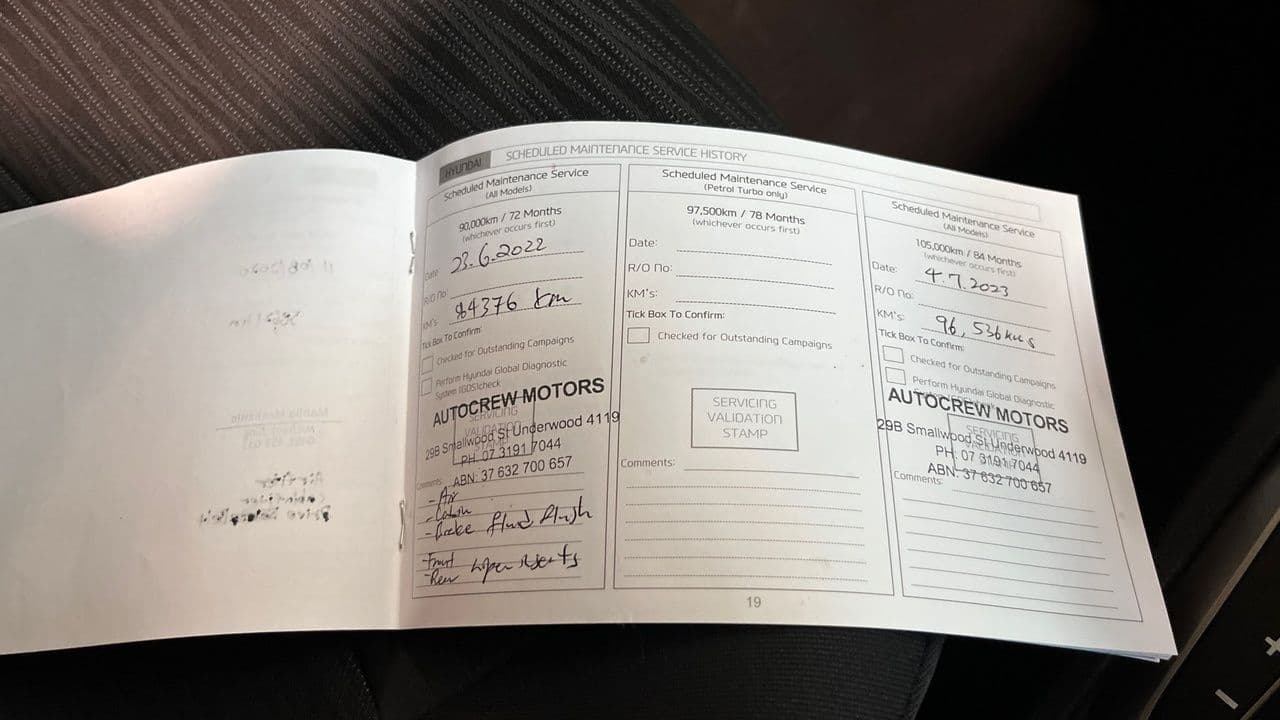 HYUNDAI SCHEDULED MAINTENANCE SERVICE HISTORY
Scheduled Maintenance Service
(All Models)
90,000km / 72 Months
(whichever occurs first)
Date: 23.6.2022
R/O No:
KM's: 84376 km
Tick Box To Confirm:
Checked for Outstanding Campaigns
Perform Hyundai Global Diagnostic
System (GDS)check
AUTOCREW MOTORS
SERVICING
VALIDATION
29B Smallwood St Underwood 4119
PH: 07 3191 7044
ABN: 37 632 700 657
Comments:
- Air
- Cabin
- Brake fluid flush
- Front
- Rear wiper inserts
Scheduled Maintenance Service
(Petrol Turbo only)
97,500km / 78 Months
(whichever occurs first)
Date:
R/O No:
KM's:
Tick Box To Confirm:
Checked for Outstanding Campaigns
SERVICING
VALIDATION
STAMP
Comments:
Scheduled Maintenance Service
(All Models)
105,000km / 84 Months
(whichever occurs first)
Date: 4.7.2023
R/O No:
KM's: 96,536kms
Tick Box To Confirm:
Checked for Outstanding Campaigns
Perform Hyundai Global Diagnostic
AUTOCREW MOTORS
SERVICING
29B Smallwood St Underwood 4119
PH: 07 3191 7044
ABN: 37 632 700 657
Comments:
19